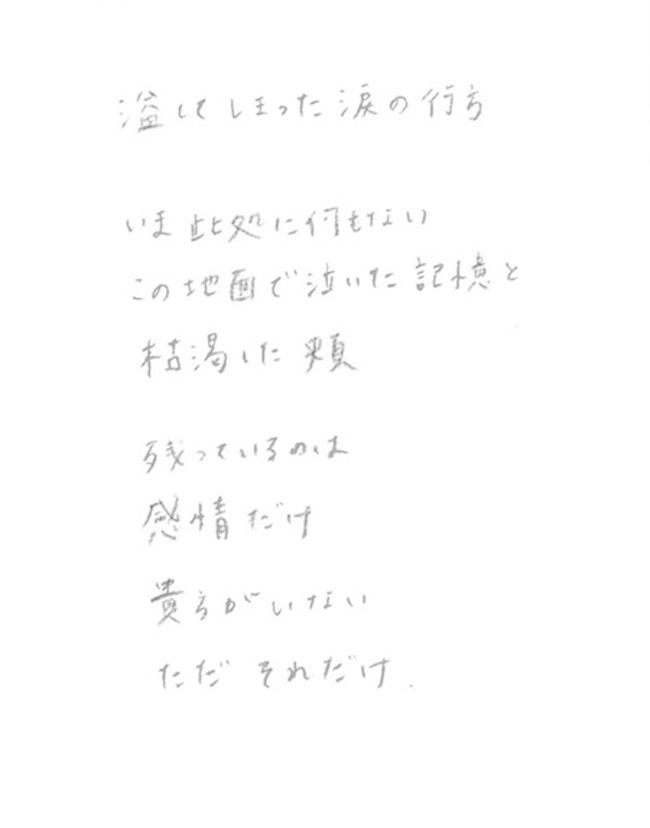 溢してしまった涙の行方
いま此処に何もない
この地面で泣いた記憶と
枯渇した頬
残っているのは
感情だけ
貴方がいない
ただそれだけ.